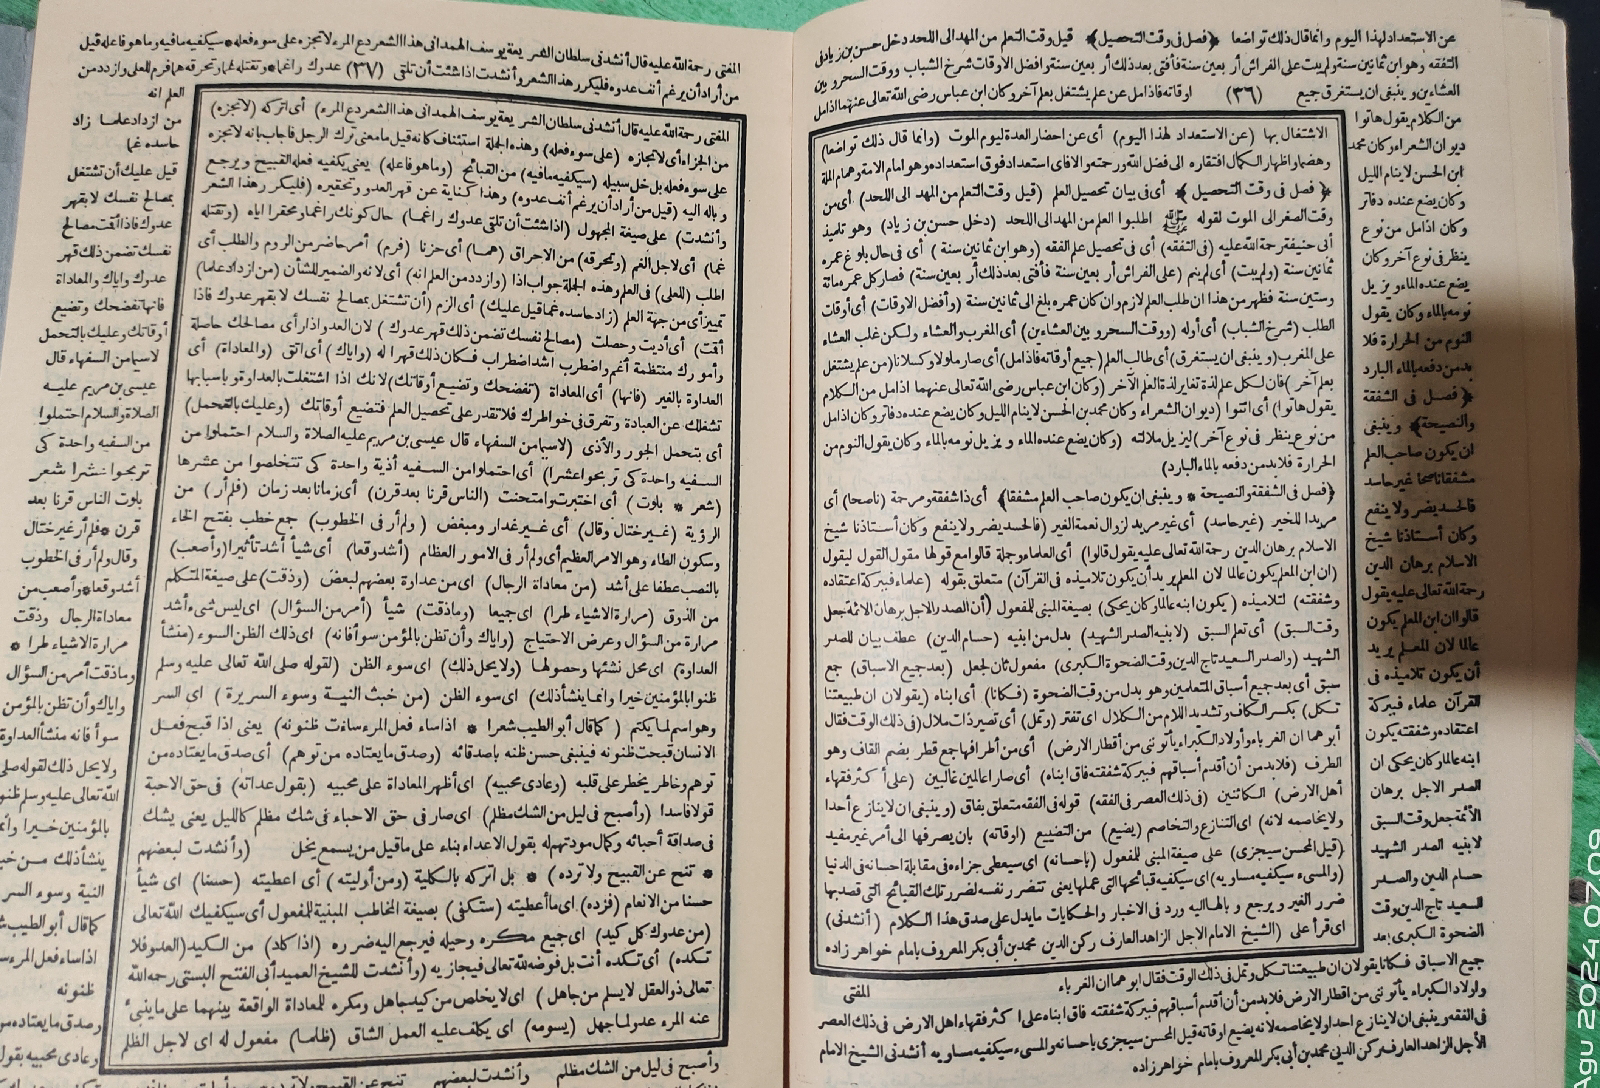 عن الاستعداد لهذا اليوم وانما قال ذلك تواضعا ﴿فصل في وقت التحصيل﴾ قيل وقت التعلم من المهد الى اللحد دخل حسن بن زياد في
التفقه وهو ابن ثمانين سنة ولم يبت على الفراش أربعين سنة فأفتى بعد ذلك أربعين سنة وافضل الاوقات شرخ الشباب ووقت السحر وبين
العشاءين وينبغي ان يستغرق جميع (٣٦) اوقاته فاذا مل عن علم يشتغل بعلم آخر وكان ابن عباس رضى الله تعالى عنهما اذا مل
من الكلام يقول هاتوا
ديوان الشعراء وكان محمد
ابن الحسن لا ينام الليل
وكان يضع عنده دفاتر
وكان اذا مل من نوع
ينظر في نوع آخر وكان
يضع عنده الماء ويزيل
نومه بالماء وكان يقول
النوم من الحرارة فلا
بد من دفعه بالماء البارد
﴿فصل في الشفقة
والنصيحة﴾ وينبغي
ان يكون صاحب العلم
مشفقا ناصحا غير حاسد
فالحسد يضر ولا ينفع
وكان أستاذنا شيخ
الاسلام برهان الدين
رحمة الله تعالى عليه يقول
قالوا ان ابن المعلم يكون
عالما لان المعلم يريد
أن يكون تلاميذه في
القرآن علماء فبركة
اعتقاده وشفقته يكون
ابنه عالما وكان يحكى ان
الصدر الاجل برهان
الأئمة جعل وقت السبق
لابنيه الصدر الشهيد
حسام الدين والصدر
السعيد تاج الدين وقت
الضحوة الكبرى بعد
الاشتغال بها (عن الاستعداد لهذا اليوم) أى عن احضار العدة ليوم الموت (وانما قال ذلك تواضعا)
وهضما واظهار الكمال افتقاره الى فضل الله ورحمته والا فاى استعداد فوق استعداده وهو امام الامة وهمام الملة
﴿فصل في وقت التحصيل﴾ أى فى بيان تحصيل العلم (قيل وقت التعلم من المهد الى اللحد) أى من
وقت الصغر الى الموت لقوله ﷺ اطلبوا العلم من المهد الى اللحد (دخل حسن بن زياد) وهو تلميذ
أبى حنيفة رحمة الله عليه (في التفقه) أى فى تحصيل علم الفقه (وهو ابن ثمانين سنة) أى فى حال بلوغ عمره
ثمانين سنة (ولم يبت) أى لم ينم (على الفراش أربعين سنة فأفتى بعد ذلك أربعين سنة) فصار كل عمره مائة
وستين سنة فظهر من هذا ان طلب العلم لازم وان كان عمره بلغ الى ثمانين سنة (وأفضل الاوقات) أى أوقات
الطلب (شرخ الشباب) أى أوله (ووقت السحر وبين العشاءين) أى المغرب والعشاء ولكن غلب العشاء
على المغرب (وينبغى ان يستغرق) أى طالب العلم (جميع أوقاته فاذا مل) أى صار ملولا وكسلانا (من علم يشتغل
بعلم آخر) فان لكل علم لذة تغاير لذة العلم الآخر (وكان ابن عباس رضى الله تعالى عنهما اذا مل من الكلام
يقول هاتوا) أى ائتوا (ديوان الشعراء وكان محمد بن الحسن لا ينام الليل وكان يضع عنده دفاتر وكان اذا مل
من نوع ينظر في نوع آخر) ليزيل ملالته (وكان يضع عنده الماء ويزيل نومه بالماء وكان يقول النوم من
الحرارة فلا بد من دفعه بالماء البارد)
﴿فصل في الشفقة والنصيحة * وينبغى ان يكون صاحب العلم مشفقا﴾ أى ذا شفقة ومرحمة (ناصحا) أى
مريدا للخير (غير حاسد) أى غير مريد لزوال نعمة الغير (فالحسد يضر ولا ينفع وكان أستاذنا شيخ
الاسلام برهان الدين رحمة الله تعالى عليه يقول قالوا) أى العلماء وجملة قالوا مع قولها مقول القول ليقول
(ان ابن المعلم يكون عالما لان المعلم يريد أن يكون تلاميذه في القرآن) متعلق بقوله (علماء فبركة اعتقاده
وشفقته) لتلاميذه (يكون ابنه عالما وكان يحكى) بصيغة المبنى للمفعول (أن الصدر الاجل برهان الائمة جعل
وقت السبق) أى تعلم السبق (لابنيه الصدر الشهيد) بدل من ابنيه (حسام الدين) عطف بيان للصدر
الشهيد (والصدر السعيد تاج الدين وقت الضحوة الكبرى) مفعول ثان لجعل (بعد جميع الاسباق) جمع
سبق أى بعد جميع أسباق المتعلمين وهو بدل من وقت الضحوة (فكانا) أى ابناه (يقولان ان طبيعتنا
تكل) بكسر الكاف وتشديد اللام من الكلال اى تفتر (وتمل) أى تصير ذات ملال (فى ذلك الوقت فقال
أبوهما ان الغرباء وأولاد الكبراء يأتونى من أقطار الارض) أى من أطرافها جمع قطر بضم القاف وهو
الطرف (فلا بد من أن أقدم أسباقهم فببركة شفقته فاق ابناه) أى صارا عالمين غالبين (على أكثر فقهاء
أهل الارض) الكائنين (فى ذلك العصر فى الفقه) قوله فى الفقه متعلق بفاق (وينبغى ان لا ينازع أحدا
ولا يخاصمه لانه) اى التنازع والتخاصم (يضيع) من التضييع (اوقاته) بان يصرفها الى أمر غير مفيد
(قيل المحسن سيجزى) على صيغة المبنى للمفعول (باحسانه) اى سيعطى جزاءه فى مقابلة احسانه فى الدنيا
(والمسىء سيكفيه مساويه) اى سيكفيه قبائحها التى عملها يعنى تتضرر نفسه لضرر تلك القبائح التى قصد بها
ضرر الغير ويرجع وبالها اليه ورد فى الاخبار والحكايات ما يدل على صدق هذا الكلام (أنشدنى)
اى قرأ على (الشيخ الامام الاجل الزاهد العارف ركن الدين محمد بن أبى بكر المعروف بامام خواهر زاده
جميع الاسباق فكانا يقولان ان طبيعتنا تكل وتمل في ذلك الوقت فقال ابوهما ان الغرباء
المفتى
واولاد الكبراء يأتوننى من اقطار الارض فلا بد من أن أقدم أسباقهم فببركة شفقته فاق ابناه على اكثر فقهاء اهل الارض في ذلك العصر
فى الفقه وينبغى ان لا ينازع احدا ولا يخاصمه لانه يضيع اوقاته قيل المحسن سيجزى باحسانه والمسىء سيكفيه مساويه أنشدنى الشيخ الامام
الأجل الزاهد العارف ركن الدين محمد بن أبى بكر المعروف بامام خواهر زاده
المفتى رحمة الله عليه قال أنشدنى سلطان الشريعة يوسف الهمدانى هذا الشعر دع المرء لا تجزه على سوء فعله * سيكفيه ما فيه وما هو فاعله قيل
من أراد أن يرغم أنف عدوه فليكرر هذا الشعر وأنشدت اذا شئت أن تلقى (٣٧) عدوك راغما * وتقتله غما وتحرقه هما فرم للعلى وازدد من
العلم انه
من ازداد علما زاد
حاسده غما
قيل عليك أن تشتغل
بمصالح نفسك لا بقهر
عدوك فاذا أقمت مصالح
نفسك تضمن ذلك قهر
عدوك واياك والمعاداة
فانها تفضحك وتضيع
أوقاتك وعليك بالتحمل
لا سيما من السفهاء قال
عيسى بن مريم عليه
الصلاة والسلام احتملوا
من السفيه واحدة كى
تربحوا عشرا شعر
بلوت الناس قرنا بعد
قرن * فلم أر غير ختال
وقال ولم أر فى الخطوب
أشد وقعا * وأصعب من
معاداة الرجال وذقت
مرارة الاشياء طرا *
وما ذقت أمر من السؤال
واياك وأن تظن بالمؤمن
سوأ فانه منشأ العداوة
ولا يحل ذلك لقوله صلى
الله تعالى عليه وسلم ظنوا
بالمؤمنين خيرا وانما
ينشأ ذلك من خبث
النية وسوء السر
كما قال أبو الطيب
اذا ساء فعل المرء ساءت
ظنونه
وصدق ما يعتاده من
وعادى محبيه بقول
المفتى رحمة الله عليه قال أنشدنى سلطان الشريعة يوسف الهمدانى هذا الشعر دع المرء) أى اتركه (لا تجزه)
من الجزاء أى لا تجازه (على سوء فعله) وهذه الجملة استئناف كانه قيل ما معنى ترك الرجل فاجاب بانه لا تجزه
على سوء فعله بل خل سبيله (سيكفيه ما فيه) من القبائح (وما هو فاعله) يعنى يكفيه فعله القبيح ويرجع
وباله اليه (قيل من أراد أن يرغم أنف عدوه) وهذا كناية عن قهر العدو وتحقيره (فليكرر هذا الشعر
وأنشدت) على صيغة المجهول (اذا شئت أن تلقى عدوك راغما) حال كونك راغما ومحقرا اياه (وتقتله
غما) أى لاجل الغم (وتحرقه) من الاحراق (هما) أى حزنا (فرم) أمر حاضر من الروم والطلب أى
اطلب (للعلى) فى العلم وهذه الجملة جواب اذا (وازدد من العلم انه) أى لانه والضمير للشأن (من ازداد علما)
تمييز أى من جهة العلم (زاد حاسده غما قيل عليك) أى الزم (أن تشتغل بمصالح نفسك لا بقهر عدوك فاذا
أقمت) أى أديت وحصلت (مصالح نفسك تضمن ذلك قهر عدوك) لان العدو اذا رأى مصالحك حاصلة
وأمورك منتظمة أغتم واضطرب اشد اضطراب فكان ذلك قهرا له (واياك) أى اتق (والمعاداة) أى
العداوة بالغير (فانها) أى المعاداة (تفضحك وتضيع أوقاتك) لانك اذا اشتغلت بالعداوة وباسبابها
تشغلك عن العبادة وتفرق فى خواطرك فلا تقدر على تحصيل العلم فتضيع أوقاتك (وعليك بالتحمل)
أى بتحمل الجور والأذى (لا سيما من السفهاء قال عيسى بن مريم عليه الصلاة والسلام احتملوا من
السفيه واحدة كى تربحوا عشرا) أى احتملوا من السفيه أذية واحدة كى تتخلصوا من عشرها
(شعر * بلوت) أى اختبرت وامتحنت (الناس قرنا بعد قرن) أى زمانا بعد زمان (فلم أر) من
الرؤية (غير ختال وقال) أى غير غدار ومبغض (ولم أر فى الخطوب) جمع خطب بفتح الخاء
وسكون الطاء وهو الامر العظيم أى ولم أر فى الامور العظام (أشد وقعا) أى شيأ أشد تأثيرا (وأصعب)
بالنصب عطفا على أشد (من معاداة الرجال) أى من عداوة بعضهم لبعض (وذقت) على صيغة المتكلم
من الذوق (مرارة الاشياء طرا) اى جميعا (وما ذقت) شيأ (أمر من السؤال) اى ليس شىء أشد
مرارة من السؤال وعرض الاحتياج (واياك وأن تظن بالمؤمن سوأ فانه) اى ذلك الظن السوء (منشأ
العداوة) اى محل نشئها وحصولها (ولا يحل ذلك) اى سوء الظن (لقوله صلى الله تعالى عليه وسلم
ظنوا بالمؤمنين خيرا وانما ينشأ ذلك) اى سوء الظن (من خبث النية وسوء السريرة) اى السر
وهو اسم لما يكتم (كما قال أبو الطيب شعرا * اذا ساء فعل المرء ساءت ظنونه) يعنى اذا قبح فعل
الانسان قبحت ظنونه فينبغى حسن ظنه باصدقائه (وصدق ما يعتاده من توهم) أى صدق ما يعتاده من
توهم وخاطر يخطر على قلبه (وعادى محبيه) اى أظهر المعاداة على محبيه (بقول عداته) فى حق الاحبة
قولا فاسدا (وأصبح فى ليل من الشك مظلم) اى صار فى حق الاحباء فى شك مظلم كالليل يعنى يشك
فى صداقة أحبائه وكمال مودتهم له بقول الاعداء بناء على ما قيل من يسمع يخل (وأنشدت لبعضهم
* تنح عن القبيح ولا ترده) * بل اتركه بالكلية (ومن أوليته) أى اعطيته (حسنا) اى شيأ
حسنا من الانعام (فزده) اى ما أعطيته (ستكفى) بصيغة المخاطب المبنية للمفعول أى سيكفيك الله تعالى
(من عدوك كل كيد) اى جميع مكره وحيله فيرجع اليه ضرره (اذا كاد) من الكيد (العدو فلا
تكده) أى تكده أنت بل فوضه لله تعالى فيجازيه (وأنشدت للشيخ العميد أبى الفتح البستى رحمه الله
تعالى ذو العقل لا يسلم من جاهل) اى لا يخلص من كيد جاهل ومكره للمعاداة الواقعة بينهما على ما ينبئ
عنه المرء عدو لما جهل (يسومه) اى يكلف عليه العمل الشاق (ظلما) مفعول له اى لاجل الظلم
وأصبح فى ليل من الشك مظلم وأنشدت لبعضهم تنح عن القبيح ولا ترده
Agu 2024 07.09